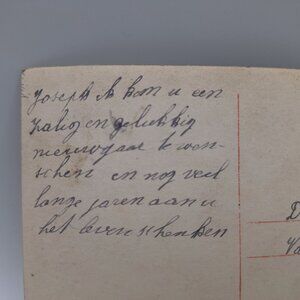 Joseph ik kom u een
zalig en gelukkig
nieuwjaar te wen-
schen en nog veel
lange jaren aan u
het leven schenken
D
Va